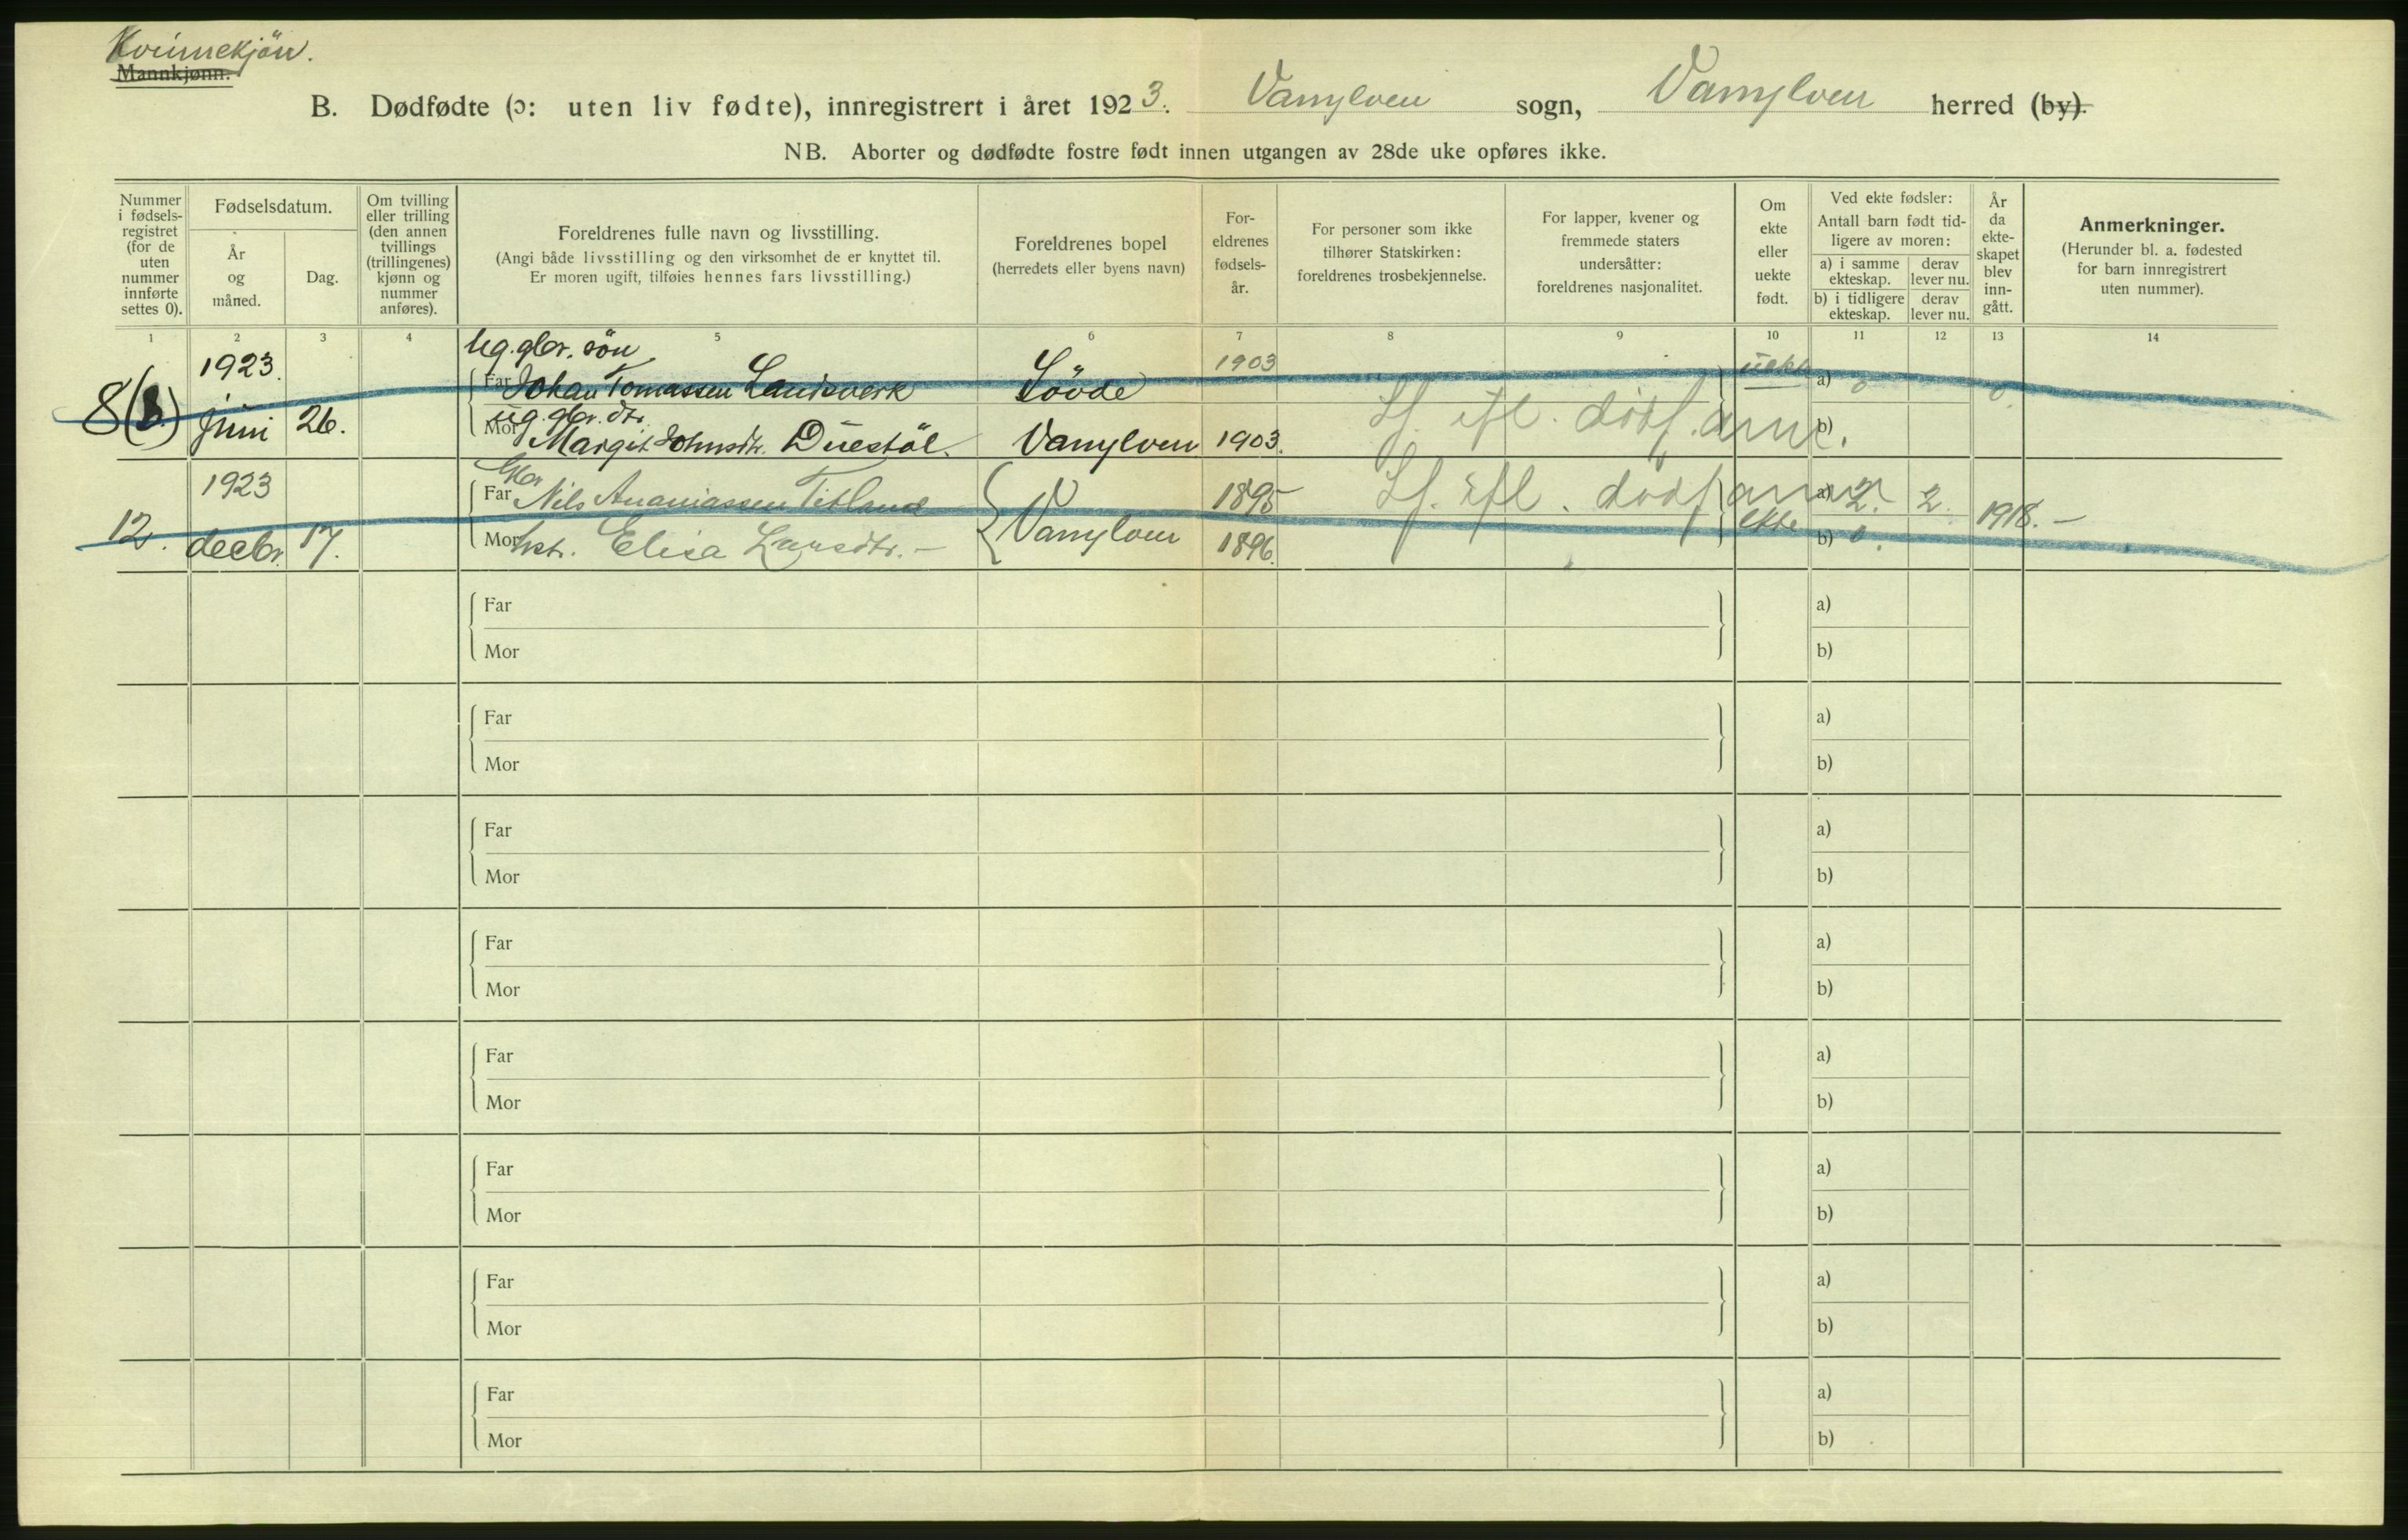 Kvinnekjön.
Mannkjønn.
B. Dødfødte (ɔ: uten liv fødte), innregistrert i året 1923. Vanylven sogn, Vanylven herred (by).
NB. Aborter og dødfødte fostre født innen utgangen av 28de uke opføres ikke.
Nummer i fødsels-registret (for de uten nummer innførte settes 0).
Fødselsdatum.
År og måned.
Dag.
Om tvilling eller trilling (den annen tvillings (trillingenes) kjønn og nummer anføres).
Foreldrenes fulle navn og livsstilling.
(Angi både livsstilling og den virksomhet de er knyttet til.
Er moren ugift, tilføies hennes fars livsstilling.)
Foreldrenes bopel
(herredets eller byens navn)
For-eldrenes fødsels-år.
For personer som ikke tilhører Statskirken: foreldrenes trosbekjennelse.
For lapper, kvener og fremmede staters undersåtter: foreldrenes nasjonalitet.
Om ekte eller uekte født.
Ved ekte fødsler:
Antall barn født tid-ligere av moren:
a) i samme ekteskap.
derav lever nu.
b) i tidligere ekteskap.
derav lever nu.
År da ekte-skapet blev inn-gått.
Anmerkninger.
(Herunder bl. a. fødested for barn innregistrert uten nummer).
1 2 3 4 5 6 7 8 9 10 11 12 13 14
ug. gbr. sön
1923. Far Johan Tomassen Landsverk Sövde 1903 uekte a) 0 0
ug. gbr. dtr.
8 juni 26. Mor Margit Johnsdtr. Duestöl. Vanylven 1903. b)
Gbr
1923 Far Nils Ananiassen Titland Vanylven 1895 a) 2. 2. 1918. –
12. decbr. 17. Mor hstr. Elisa Larsdtr. – 1896. ekte b) 0.
Far a)
Mor b)
Far a)
Mor b)
Far a)
Mor b)
Far a)
Mor b)
Far a)
Mor b)
Far a)
Mor b)
Far a)
Mor b)
Far a)
Mor b)